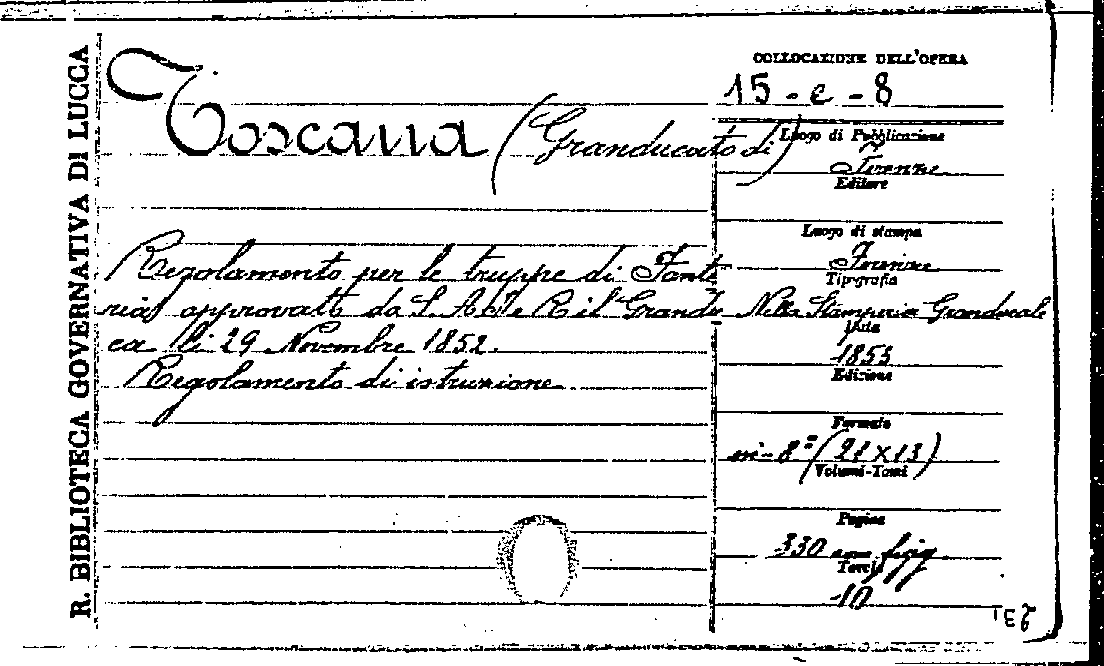 R. BIBLIOTECA GOVERNATIVA DI LUCCA
Toscana (Granducato di)
Regolamento per le truppe di Fante
ria approvato da S. A. I. e R. il Grandu
ca li 29 Novembre 1852.
Regolamento di istruzione
COLLOCAZIONE DELL'OPERA
15 - e - 8
Luogo di Pubblicazione
Firenze
Editore
Luogo di stampa
Firenze
Tipografia
Nella Stamperia Granducale
Data
1853
Edizione
Formato
in-8° (21 x 13)
Volumi-Tomi
Pagine
330 con figg
Tavole
10